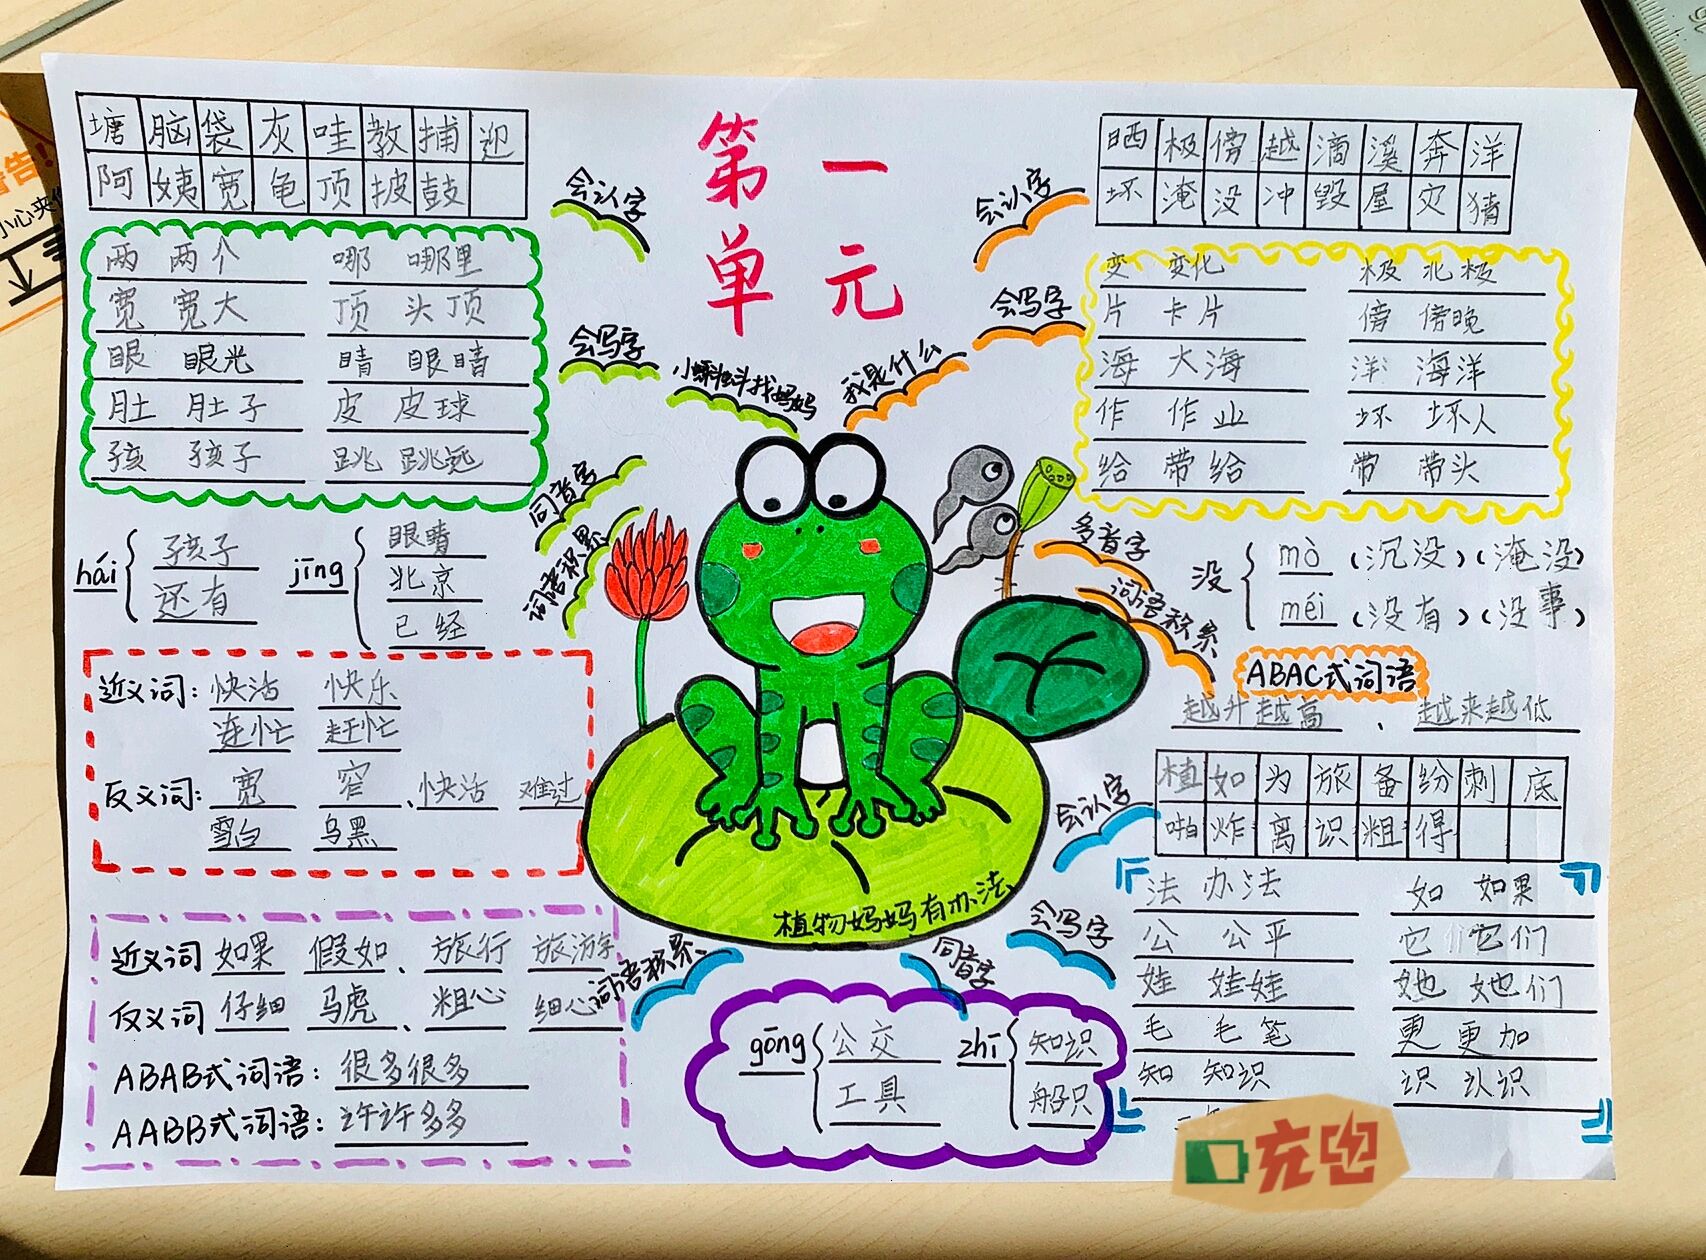 第一
单元
塘脑袋灰哇教捕迎
阿姨宽龟顶披鼓
会认字
两 两个 哪 哪里
宽 宽大 顶 头顶
眼 眼光 睛 眼睛
肚 肚子 皮 皮球
孩 孩子 跳 跳远
会写字
小蝌蚪找妈妈
同音字
hái 孩子 还有
jīng 眼睛 北京 已经
词语积累
近义词: 快活 快乐
连忙 赶忙
反义词: 宽 窄、快活 难过
雪白 乌黑
我是什么
会认字
晒极傍越滴溪奔洋
坏淹没冲毁屋灾猜
会写字
变 变化 极 北极
片 卡片 傍 傍晚
海 大海 洋 海洋
作 作业 坏 坏人
给 带给 带 带头
多音字
没 mò (沉没)(淹没)
méi (没有)(没事)
词语积累
ABAC式词语
越升越高、越来越低
植物妈妈有办法
会认字
植如为旅备纷刺底
啪炸离识粗得
会写字
法 办法 如 如果
公 公平 它 它们
娃 娃娃 她 她们
毛 毛笔 更 更加
知 知识 识 认识
同音字
gōng 公交 工具
zhī 知识 船只
词语积累
近义词 如果 假如、旅行 旅游
反义词 仔细 马虎、粗心 细心
ABAB式词语: 很多很多
AABB式词语: 许许多多
告!
小心夹
充电